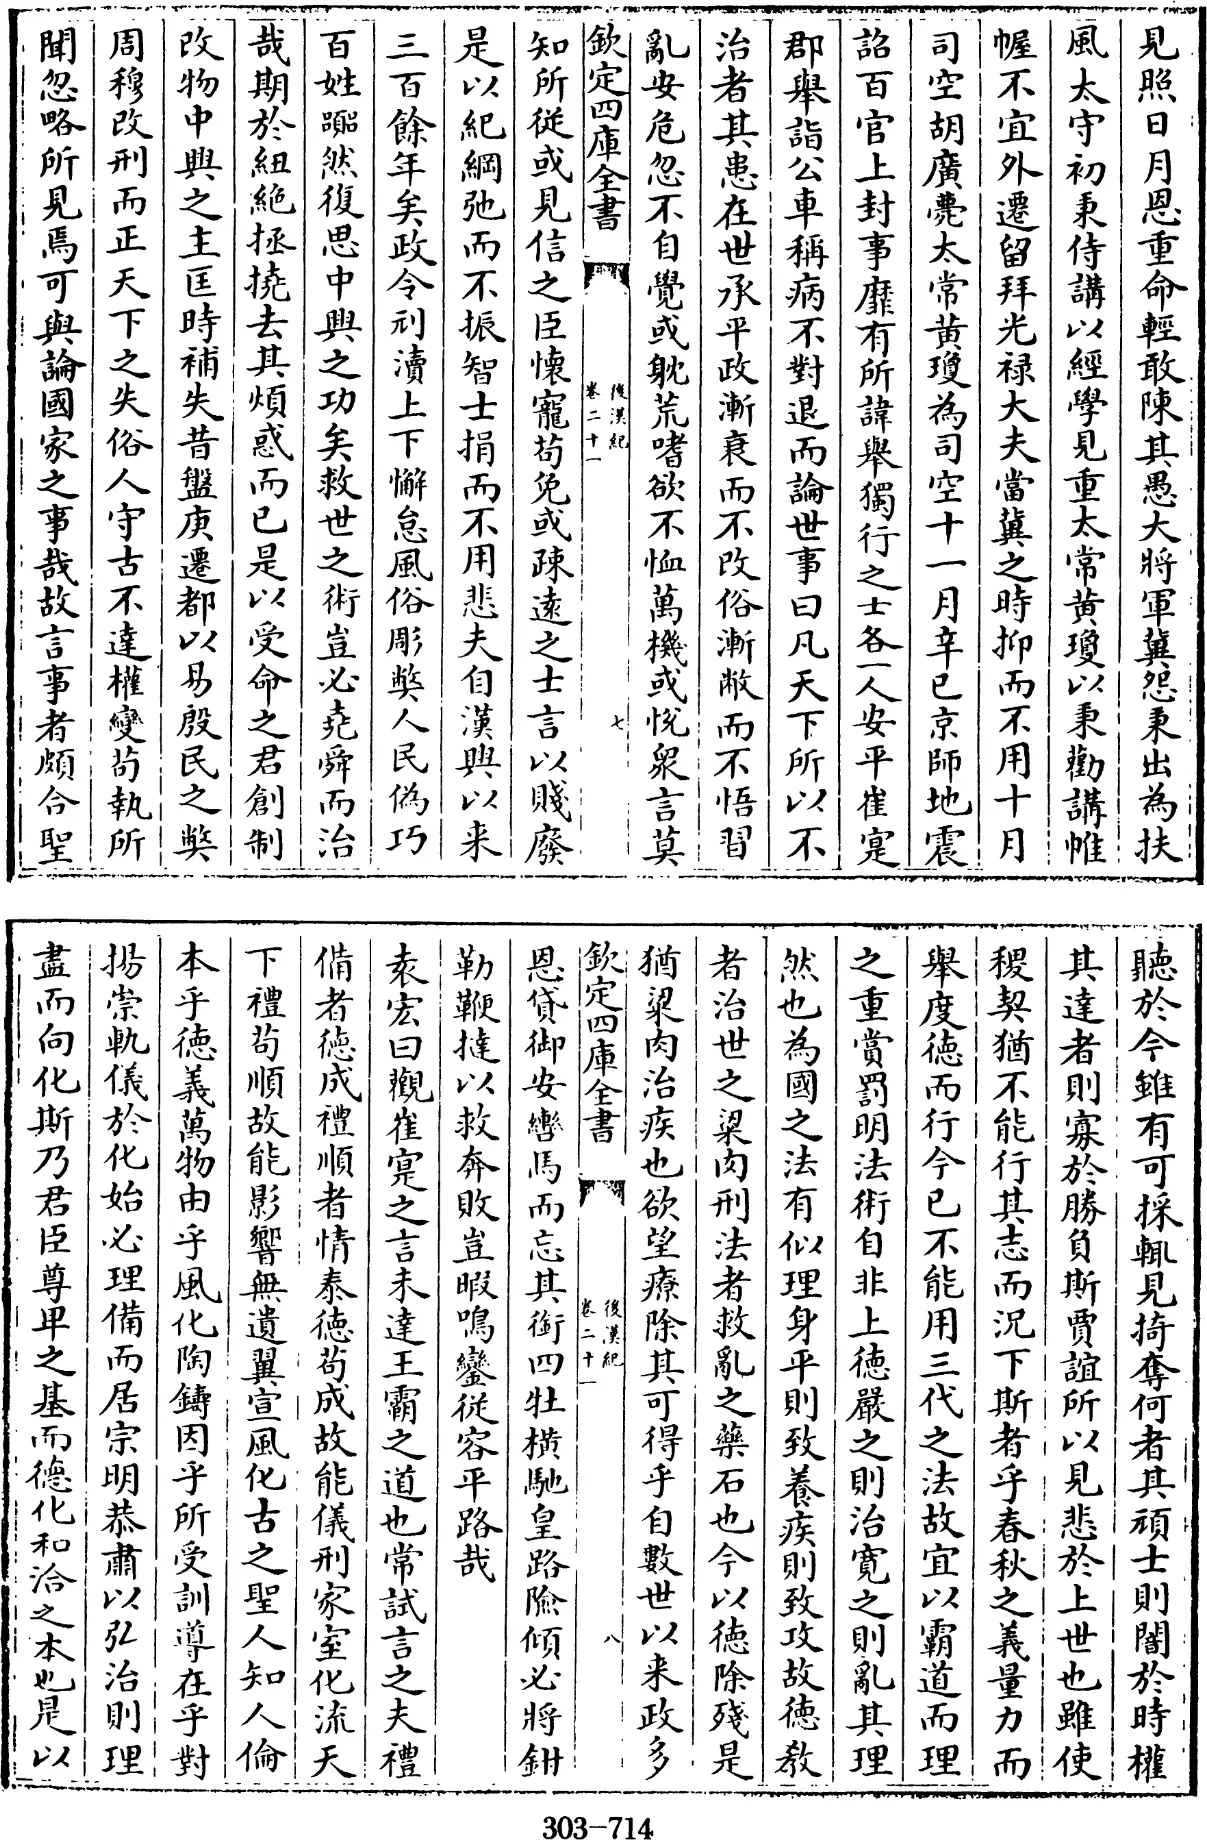 見照日月恩重命輕敢陳其愚大將軍冀怨秉出為扶
風太守初秉侍講以經學見重太常黄瓊以秉勸講帷
幄不宜外遷留拜光禄大夫當冀之時抑而不用十月
司空胡廣薨太常黄瓊為司空十一月辛已京師地震
詔百官上封事靡有所諱舉獨行之士各一人安平崔寔
郡舉詣公車稱病不對退而論世事曰凡天下所以不
治者其患在世承平政漸衰而不改俗漸敝而不悟習
亂安危忽不自覺或躭荒嗜欲不恤萬機或恱衆言莫
欽定四庫全書
後漢紀
卷二十一
七
知所從或見信之臣懷寵苟免或疎逺之士言以賤廢
是以紀綱弛而不振智士捐而不用悲夫自漢興以来
三百餘年矣政令刓瀆上下懈怠風俗彫獘人民偽巧
百姓嚻然復思中興之功矣救世之術豈必堯舜而治
哉期於紐絶拯撓去其煩惑而已是以受命之君創制
改物中興之主匡時補失昔盤庚遷都以易殷民之獘
周穆改刑而正天下之失俗人守古不達權變苟執所
聞忽略所見焉可與論國家之事哉故言事者頗合聖
聽於今雖有可採輒見掎奪何者其頑士則闇於時權
其達者則寡於勝負斯賈誼所以見悲於上世也雖使
稷契猶不能行其志而況下斯者乎春秋之義量力而
舉度徳而行今已不能用三代之法故宜以霸道而理
之重賞罰明法術自非上徳嚴之則治寛之則亂其理
然也為國之法有似理身平則致養疾則致攻故徳教
者治世之粱肉刑法者救亂之藥石也今以徳除殘是
猶粱肉治疾也欲望療除其可得乎自數世以来政多
欽定四庫全書
後漢紀
卷二十一
八
恩貸御安轡馬而忘其銜四牡横馳皇路險傾必將鉗
勒鞭撻以救奔敗豈暇鳴鑾從容平路哉
袁宏曰觀崔寔之言未達王霸之道也常試言之夫禮
備者徳成禮順者情泰徳苟成故能儀刑家室化流天
下禮苟順故能影響無遺翼宣風化古之聖人知人倫
本乎徳義萬物由乎風化陶鑄因乎所受訓導在乎對
揚崇軌儀於化始必理備而居宗明恭肅以弘治則理
盡而向化斯乃君臣尊卑之基而徳化和洽之本也是以
303-714